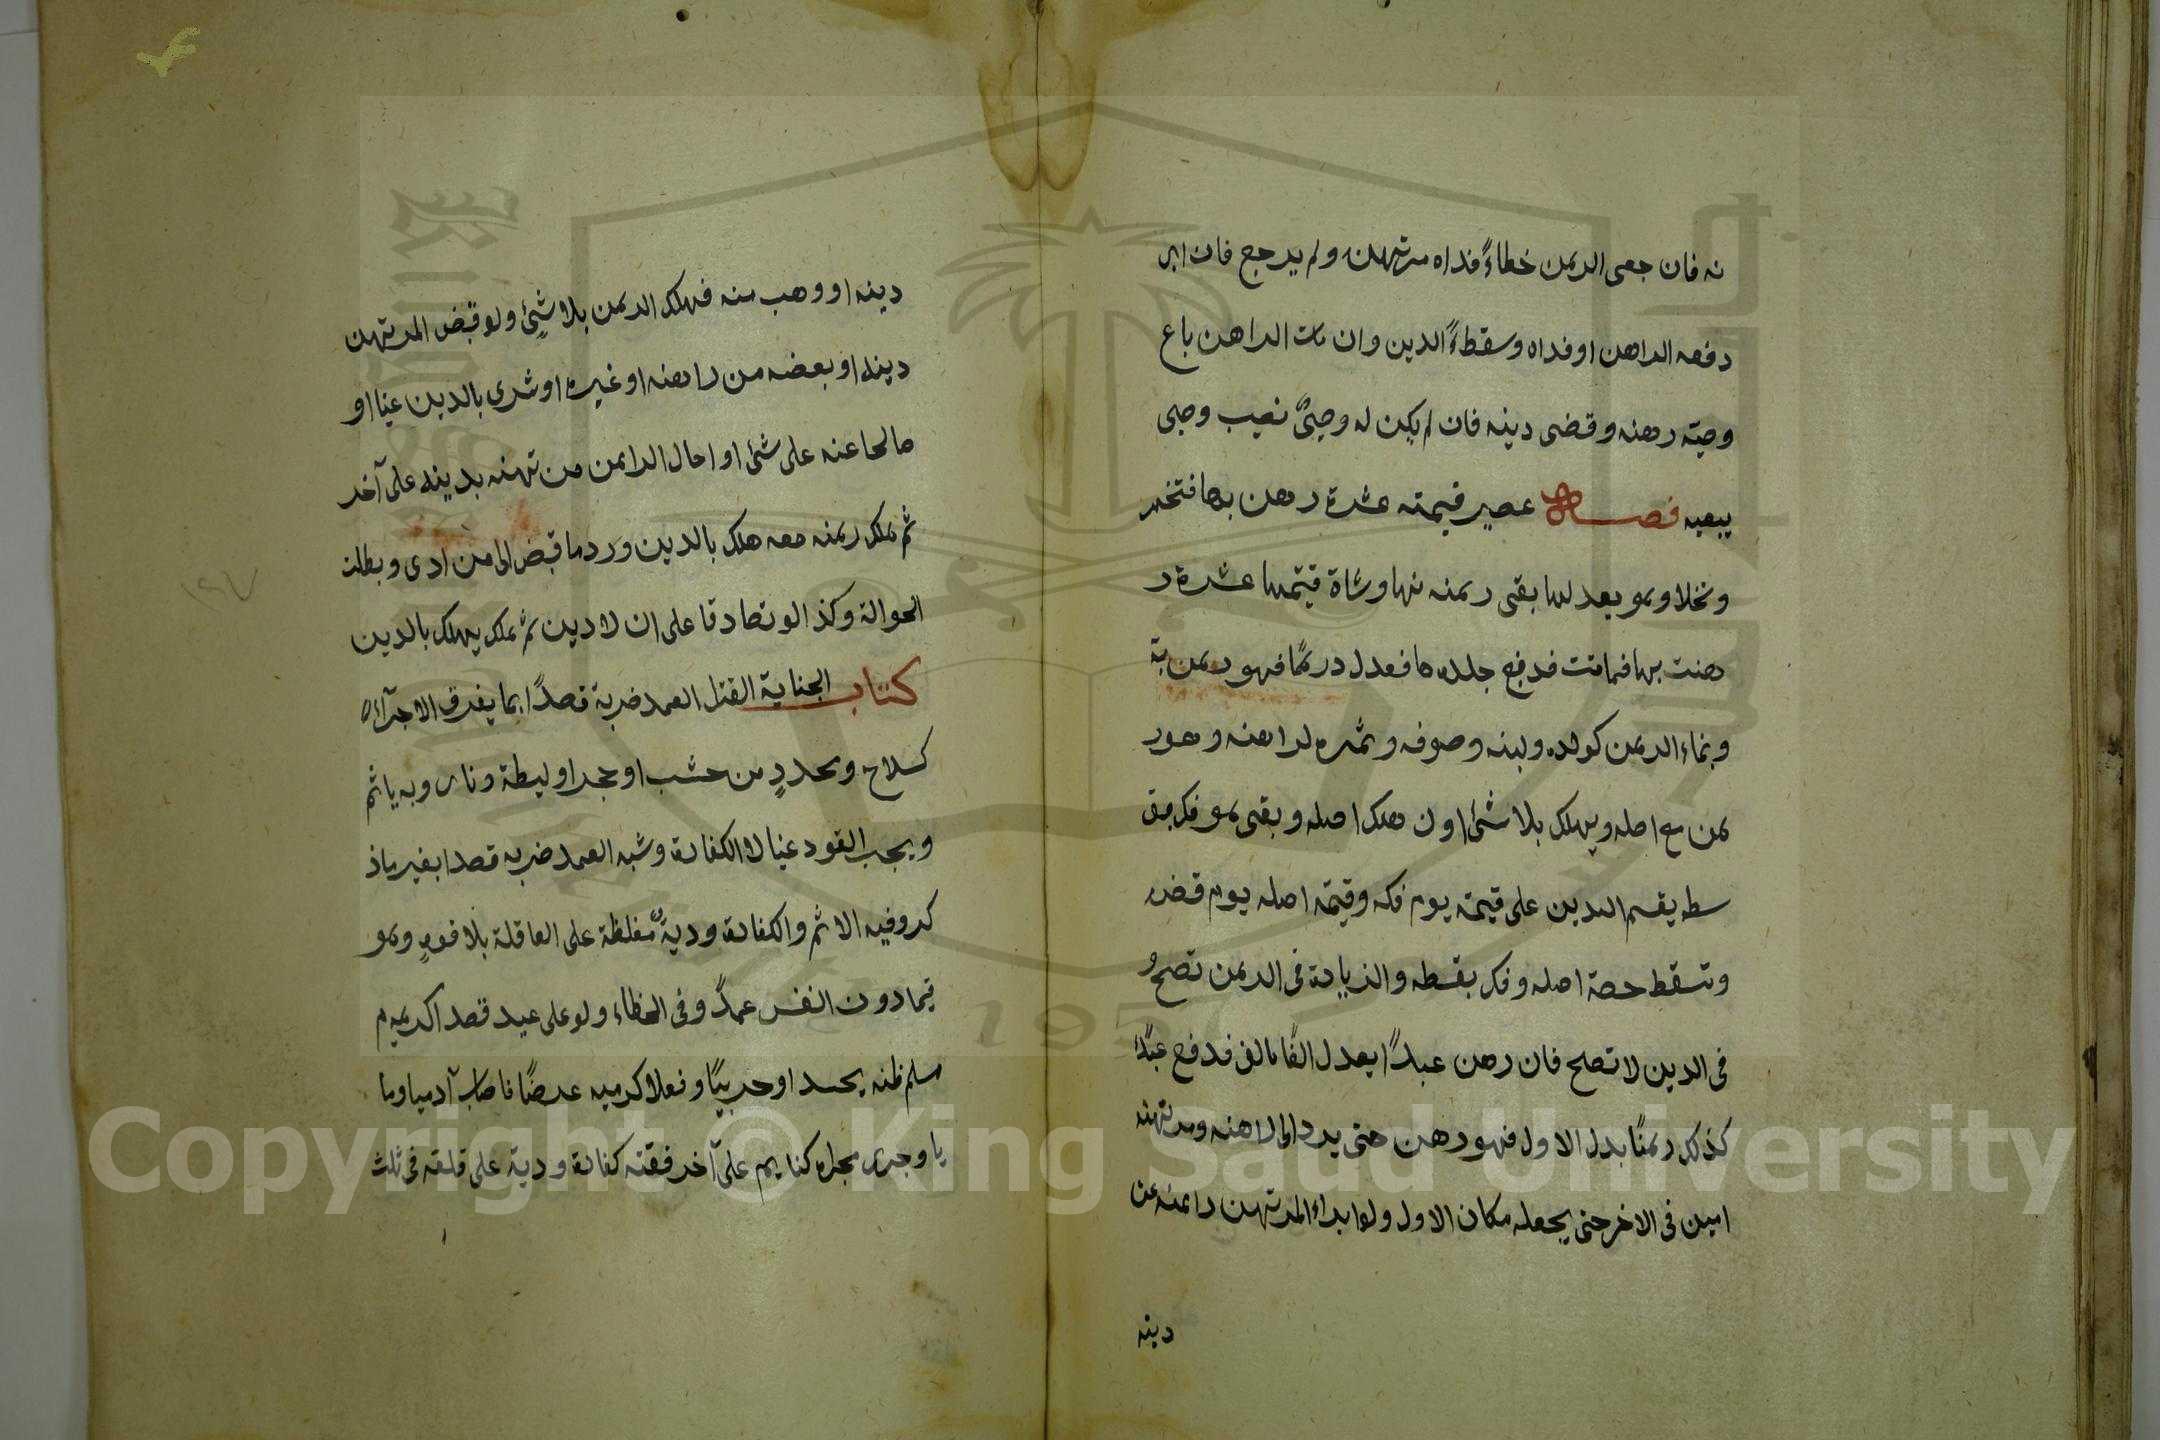 نه فان جنى الرهن خطاءً فداه مرتهنه ولم يرجع فان ابى
دفعه الراهن او فداه وسقط الدين وان مات الراهن باع
وصيّه رهنه وقضى دينه فان لم يكن له وصىٌّ نصب وصى
يبيعه فصل عصير قيمته عشرة رهن بها فتخمر
وتخلل وهو يعدلها بقى رهنه بها وشاة قيمتها عشرة ر
هنت بها فماتت فدبغ جلدها فعدل درهمًا فهو رهن به
ونماء الرهن كولده ولبنه وصوفه وثمره لراهنه وهو ر
هن مع اصله ويهلك بلا شئ وان هلك اصله وبقى هو فك بق
سطه يقسم الدين على قيمته يوم فكه وقيمة اصله يوم قبض
وتسقط حصة اصله وفك بقسطه والزيادة فى الرهن تصح و
فى الدين لا تصح فان رهن عبدًا يعدل الفًا بالف فدفع عبدًا
كذلك رهنًا بدل الاول فهو رهن حتى يرد الى راهنه ومرتهنه
امين فى الاخر حتى يجعله مكان الاول ولو ابراء المرتهن راهنه عن
دينه
دينه او وهب منه فهلك الرهن بلا شئٍ ولو قبض المرتهن
دينه او بعضه من راهنه او غيره او شرى بالدين عينا او
صالحا عنه على شئ او احال الراهن من تهنه بدينه على آخر
ثم هلك رهنه معه هلك بالدين ورد ما قبض الى من ادى وبطلت
الحوالة وكذا لو تصادقا على ان لا دين ثم هلك يهلك بالدين
كتاب الجناية القتل العمد ضربة قصدًا بما يفرق الاجزآء
كسلاح ومحددٍ من خشب او حجر او ليطة ونار وبه ياثم
ويجب القود عينا لا الكفارة وشبه العمد ضربه قصدا بغير ماذ
كر وفيه الاثم والكفارة وديةٌ مغلظة على العاقلة بلا قودٍ وهو
فيما دون النفس عمدٌ وفى الخطاء ولو على عبد قصدا كرميه م
سلم ظنه صيد او حربيًا وفعلا كرميه غرضًا فاصاب آدميا وما
يا وجرى مجراه كنايم على آخر فقتله كفارة ودية على قلقه فى ثلث